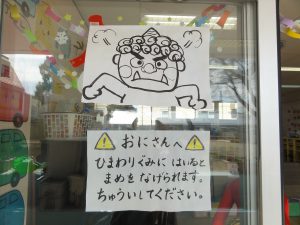 ⚠ おにさんへ ⚠
ひまわりぐみに はいると
まめを なげられます。
ちゅういしてください。